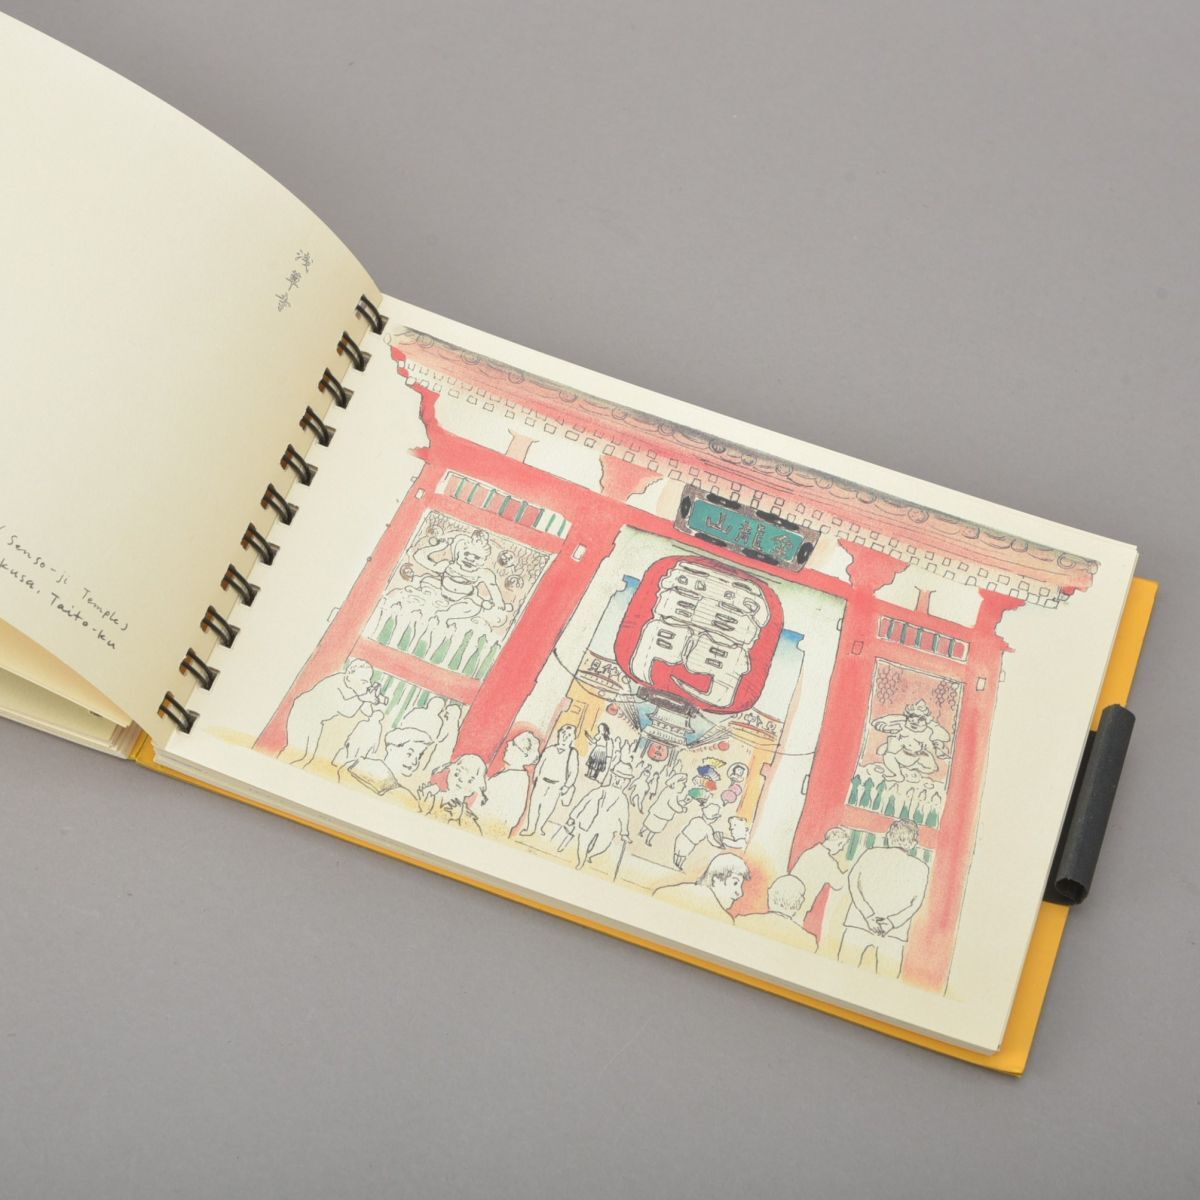 浅草寺
Senso-ji Temple
kusa, Taito-ku
金龍山
雷門